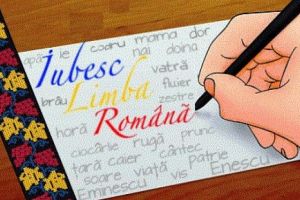 apă ie codru mama dor
Iubesc nai doina
vatră
brâu Limba fluier
zestre
horă Română
ciocârlie rugă prunc
țară caier cântec
soare viață Patrie
Eminescu vis Enescu